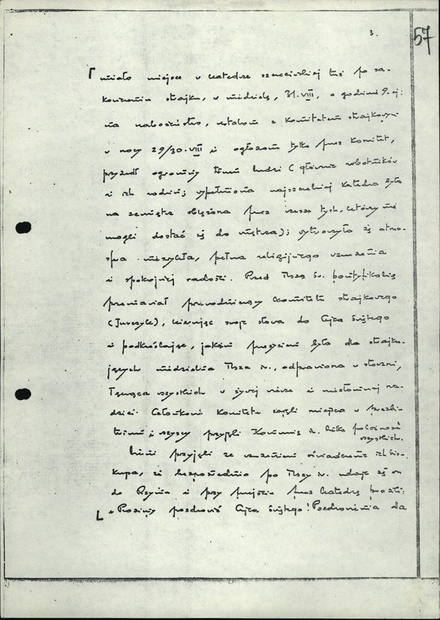 3.
57
miało miejsce w katedrze szczecińskiej tuż po za-
kończeniu strajku, w niedzielę, 31.VIII, o godzinie 9.ej:
na nabożeństwo, ustalone z Komitetem strajkowym
w nocy 29/30.VIII i ogłoszone tylko przez Komitet,
przyszedł ogromny tłum ludzi (głównie robotników
i ich rodzin; wypełniona najszczelniej Katedra była
na zewnątrz oblężona przez rzesze tych, którzy nie
mogli dostać się do wnętrza); wytworzyła się atmo-
sfera niezwykła, pełna religijnego wzruszenia
i spokojnej radości. Przed Mszą św. pontyfikalną
przemawiał przewodniczący Komitetu strajkowego
(Jurczyk), kierując swoje słowa do Ojca Świętego
i podkreślając, jakim przeżyciem była dla strajku-
jących niedzielna Msza św., odprawiona w stoczni,
łącząca wszystkich w żywej wierze i niezłomnej na-
dziei. Członkowie Komitetu zajęli miejsca w prezbi-
terium i wszyscy przyjęli Komunię św.
wszystkich.
Ludzie przyjęli ze wzruszeniem oświadczenie bis-
kupa, że bezpośrednio po Mszy św. udaje się on
do Rzymu i przy przejściu przez katedrę prosili:
"Prosimy pozdrowić Ojca Świętego! Pozdrowienia dla